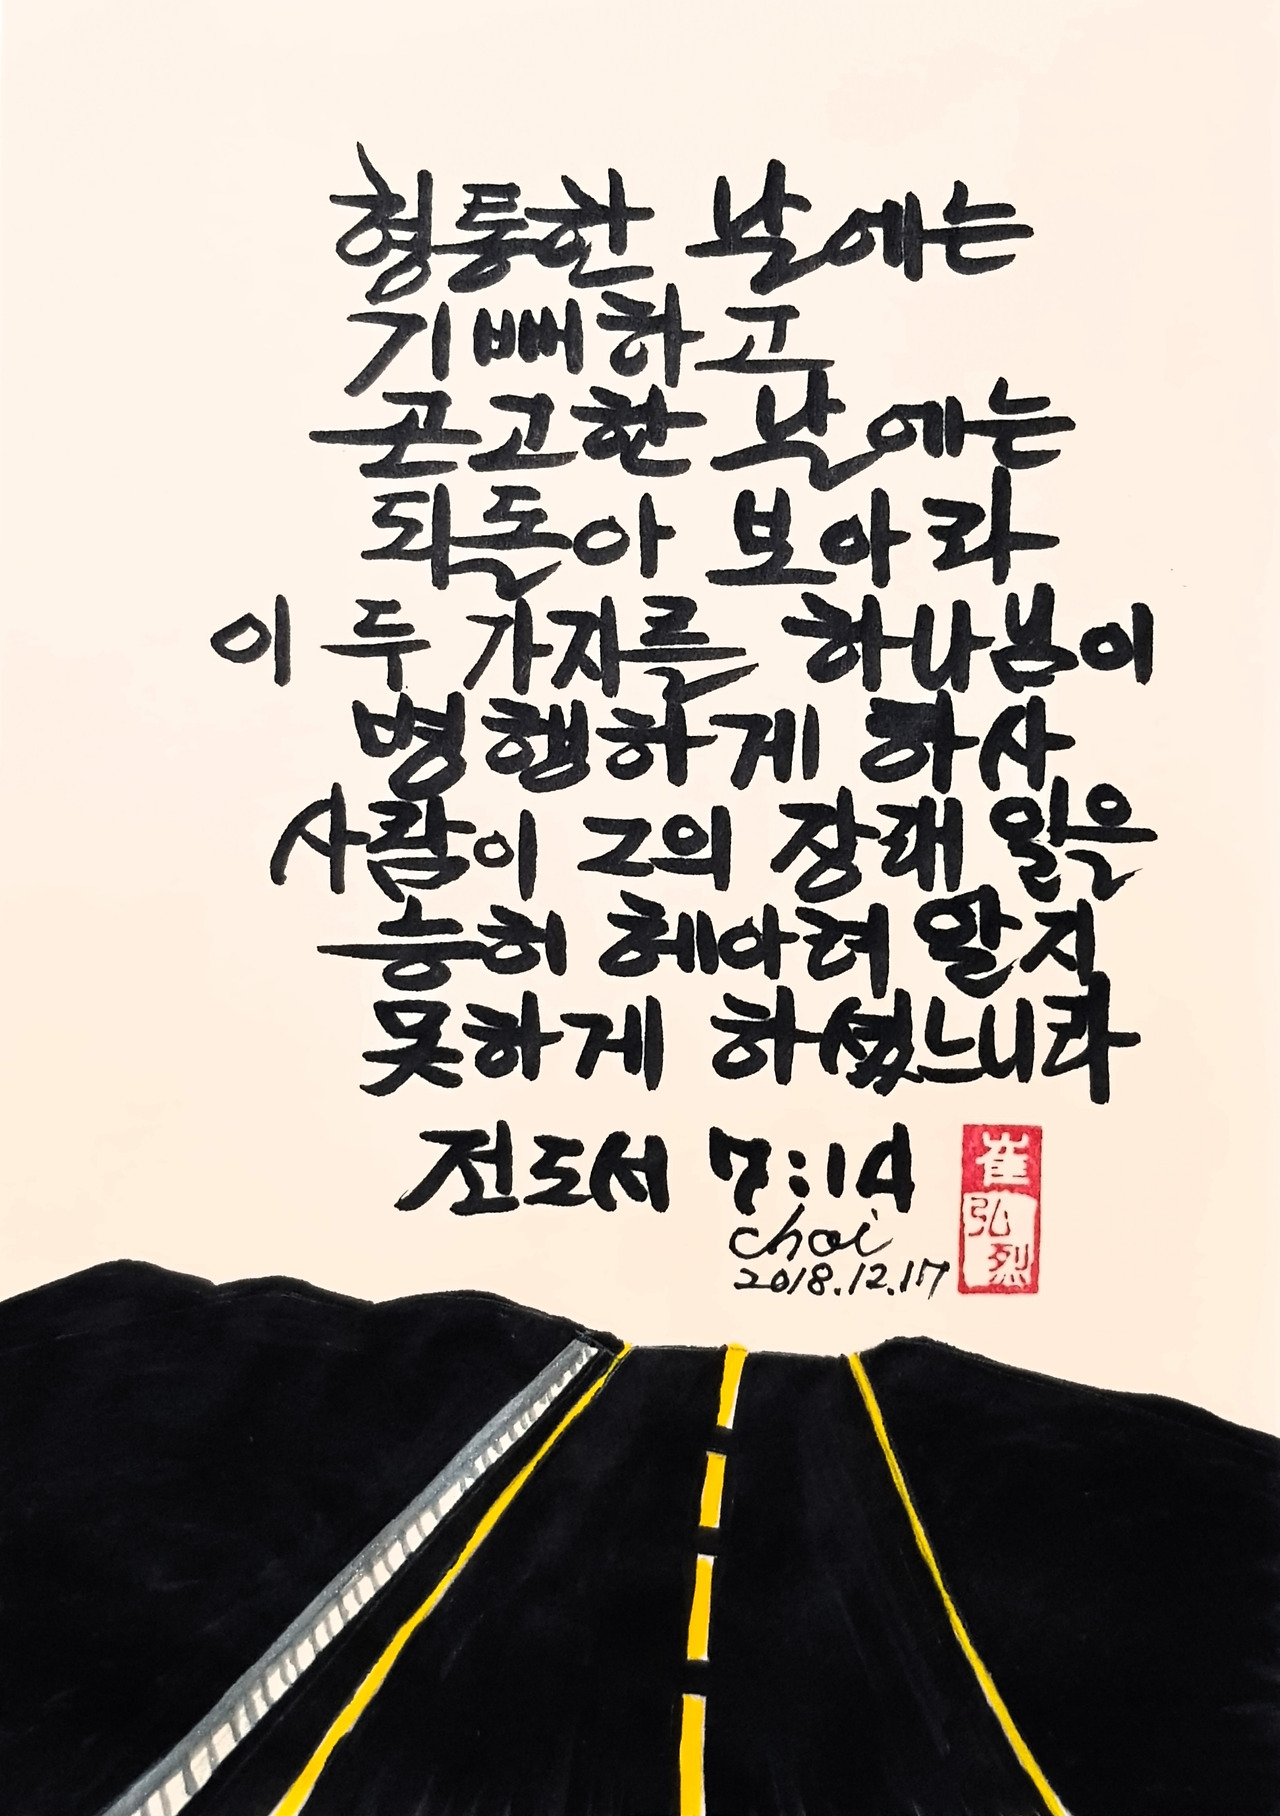 형통한 날에는
기뻐하고
곤고한 날에는
되돌아 보아라
이 두 가지를 하나님이
병행하게 하사
사람이 그의 장래 일을
능히 헤아려 알지
못하게 하셨느니라
전도서 7:14
choi
2018.12.17
崔
弘
烈